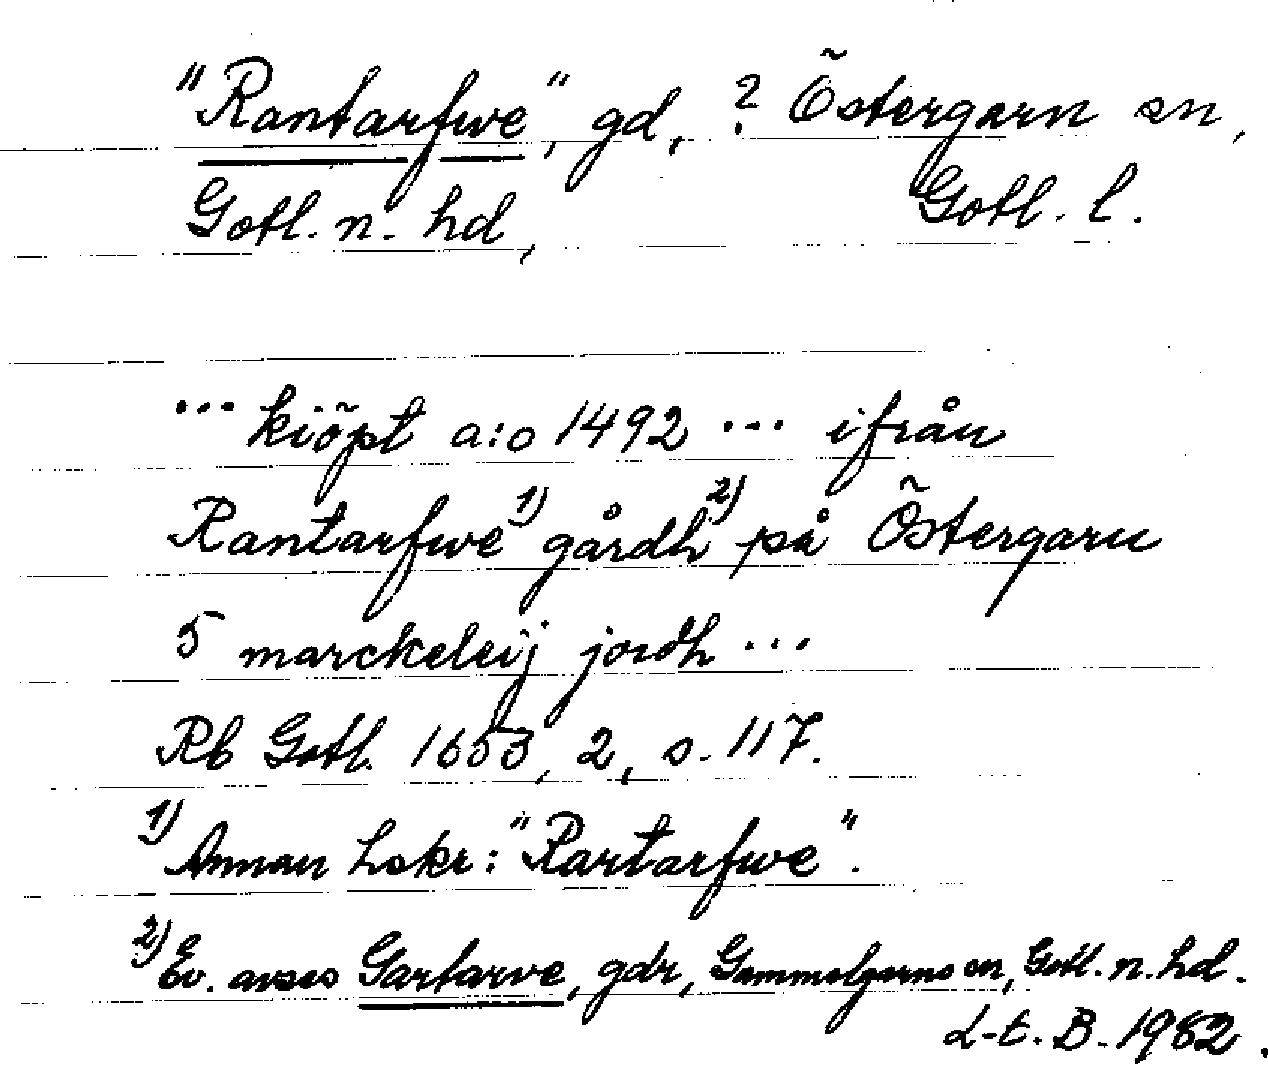 "Rantarfwe", gd, ? Östergarn sn,
Gotl. n. hd, Gotl. l.
... kiöpt a:o 1492 ... ifrån
Rantarfwe 1) gårdh 2) på Östergarn
5 marckeleij jordh ...
Rb Gotl. 1653, 2, s. 117.
1) Annan hskr: "Rartarfwe".
2) Ev. avses Gartarve, gdr, Gammelgarns sn, Gotl. n. hd.
L-t. B. 1982.